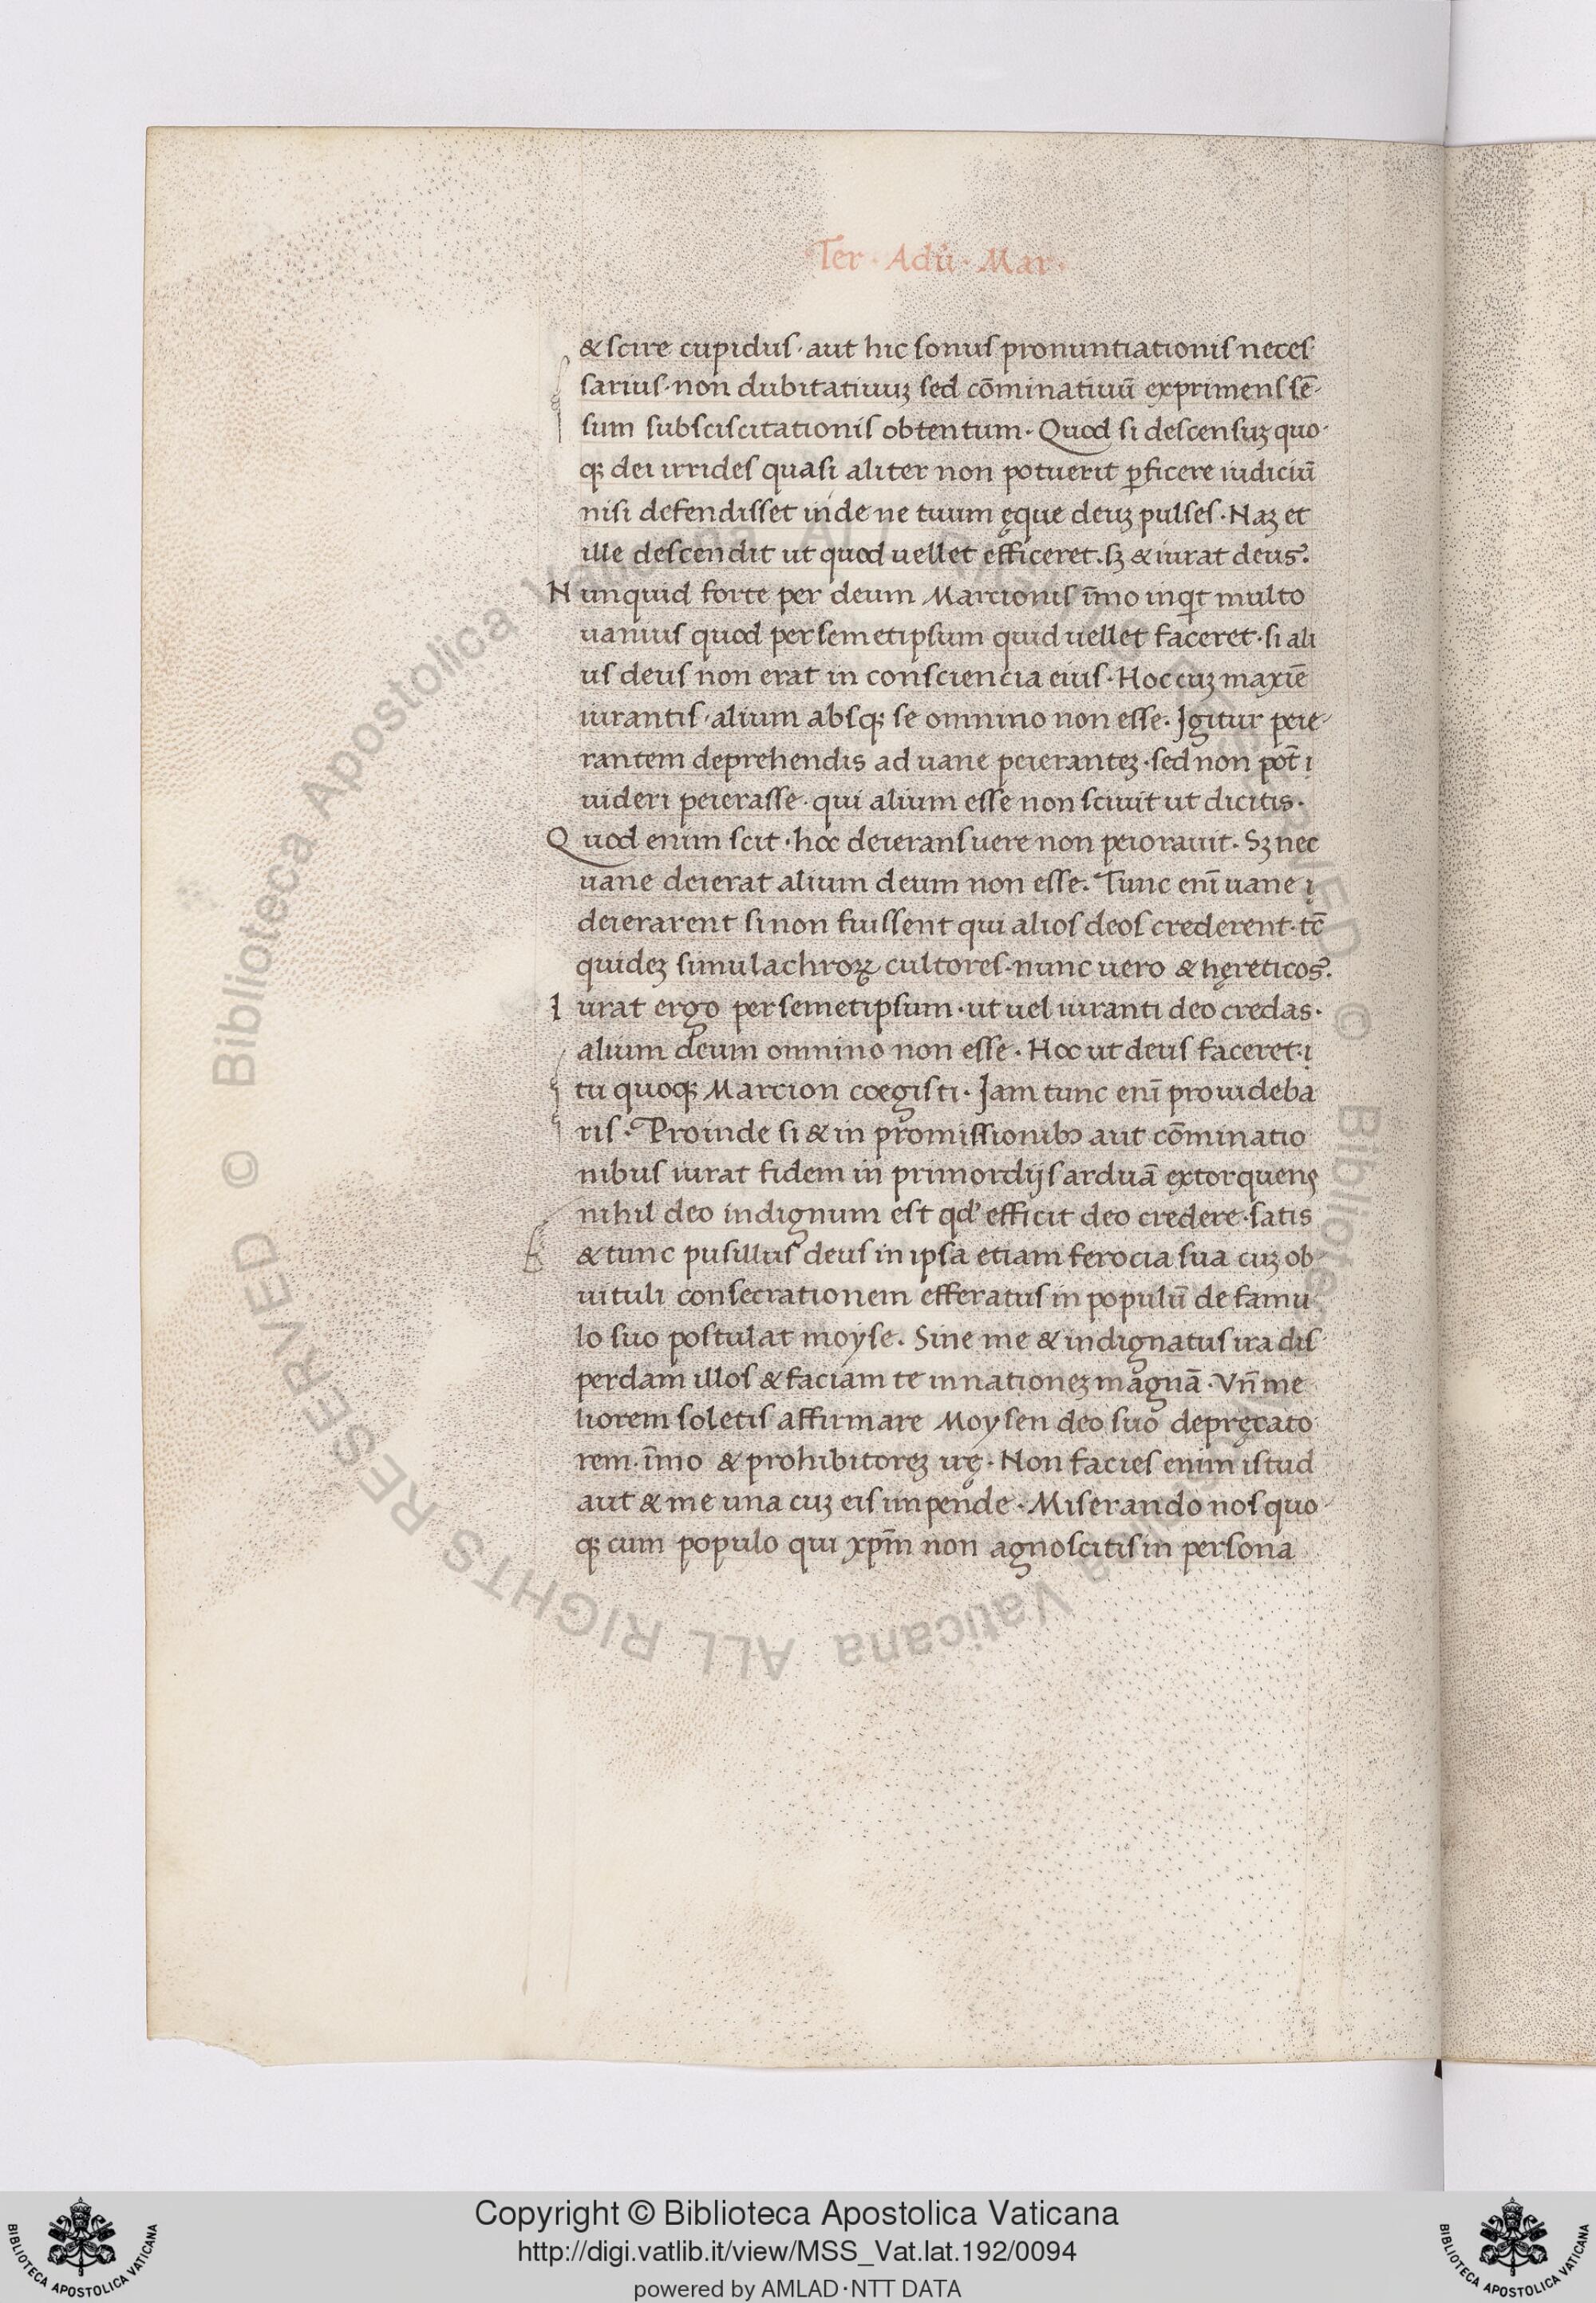 Ter · Adū · Mar ·
& scire cupidus · aut hic sonus pronuntiationis neces
sarius · non dubitatiuuꝫ sed cōminatiuū exprimens sē-
sum subsciscitationis obtentum · Quod si descensuꝫ quo-
qꝫ dei irrides quasi aliter non potuerit ꝑficere iudiciū
nisi defendisset inde ne tuum ęque deuꝫ pulses · Naꝫ et
ille descendit ut quod uellet efficeret. sꝫ & iurat deus?
Nunquid forte per deum Marcionis īmo inqt multo
uanius quod per semetipsum quid uellet faceret · si ali
us deus non erat in consciencia eius · Hoc cuꝫ maxīe
iurantis · alium absqꝫ se omnino non esse. Igitur peie-
rantem deprehendis ad uane peieranteꝫ · sed non pōt ị
uideri peierasse · qui alium esse non sciuit ut dicitis ·
Quod enim scit · hoc deierans uere non peiorauit. Sꝫ nec
uane deierat alium deum non esse. Tunc enī uane ị
deierarent si non fuissent qui alios deos crederent · tc̄
quideꝫ simulachroꝝ cultores · nunc uero & hęreticos?
Iurat ergo per semetipsum · ut uel iuranti deo credas ·
alium deum omnino non esse · Hoc ut deus faceret · ị
tu quoqꝫ Marcion coegisti · Iam tunc enī prouideba
ris · Proinde si & in promissionibꝰ aut cōminatio
nibus iurat fidem in primordijs arduā extorquens
nihil deo indignum est qd' efficit deo credere · satis
& tunc pusillus deus in ipsa etiam ferocia sua cuꝫ ob
uituli consecrationem efferatus in populū de famu
lo suo postulat moyse. Sine me & indignatus ira dis
perdam illos & faciam te in nationeꝫ magnā · Vn̄ me
liorem soletis affirmare Moysen deo suo depręcato
rem. īmo & prohibitoreꝫ irę · Non facies enim istud
aut & me una cuꝫ eis impende · Miserando nos quo-
qꝫ cum populo qui xp̄m non agnoscitis in persona
© Biblioteca Apostolica Vaticana ALL RIGHTS RESERVED © Biblioteca Apostolica Vaticana ALL RIGHTS RESERVED
Copyright © Biblioteca Apostolica Vaticana
http://digi.vatlib.it/view/MSS_Vat.lat.192/0094
powered by AMLAD·NTT DATA
BIBLIOTECA APOSTOLICA VATICANA
BIBLIOTECA APOSTOLICA VATICANA